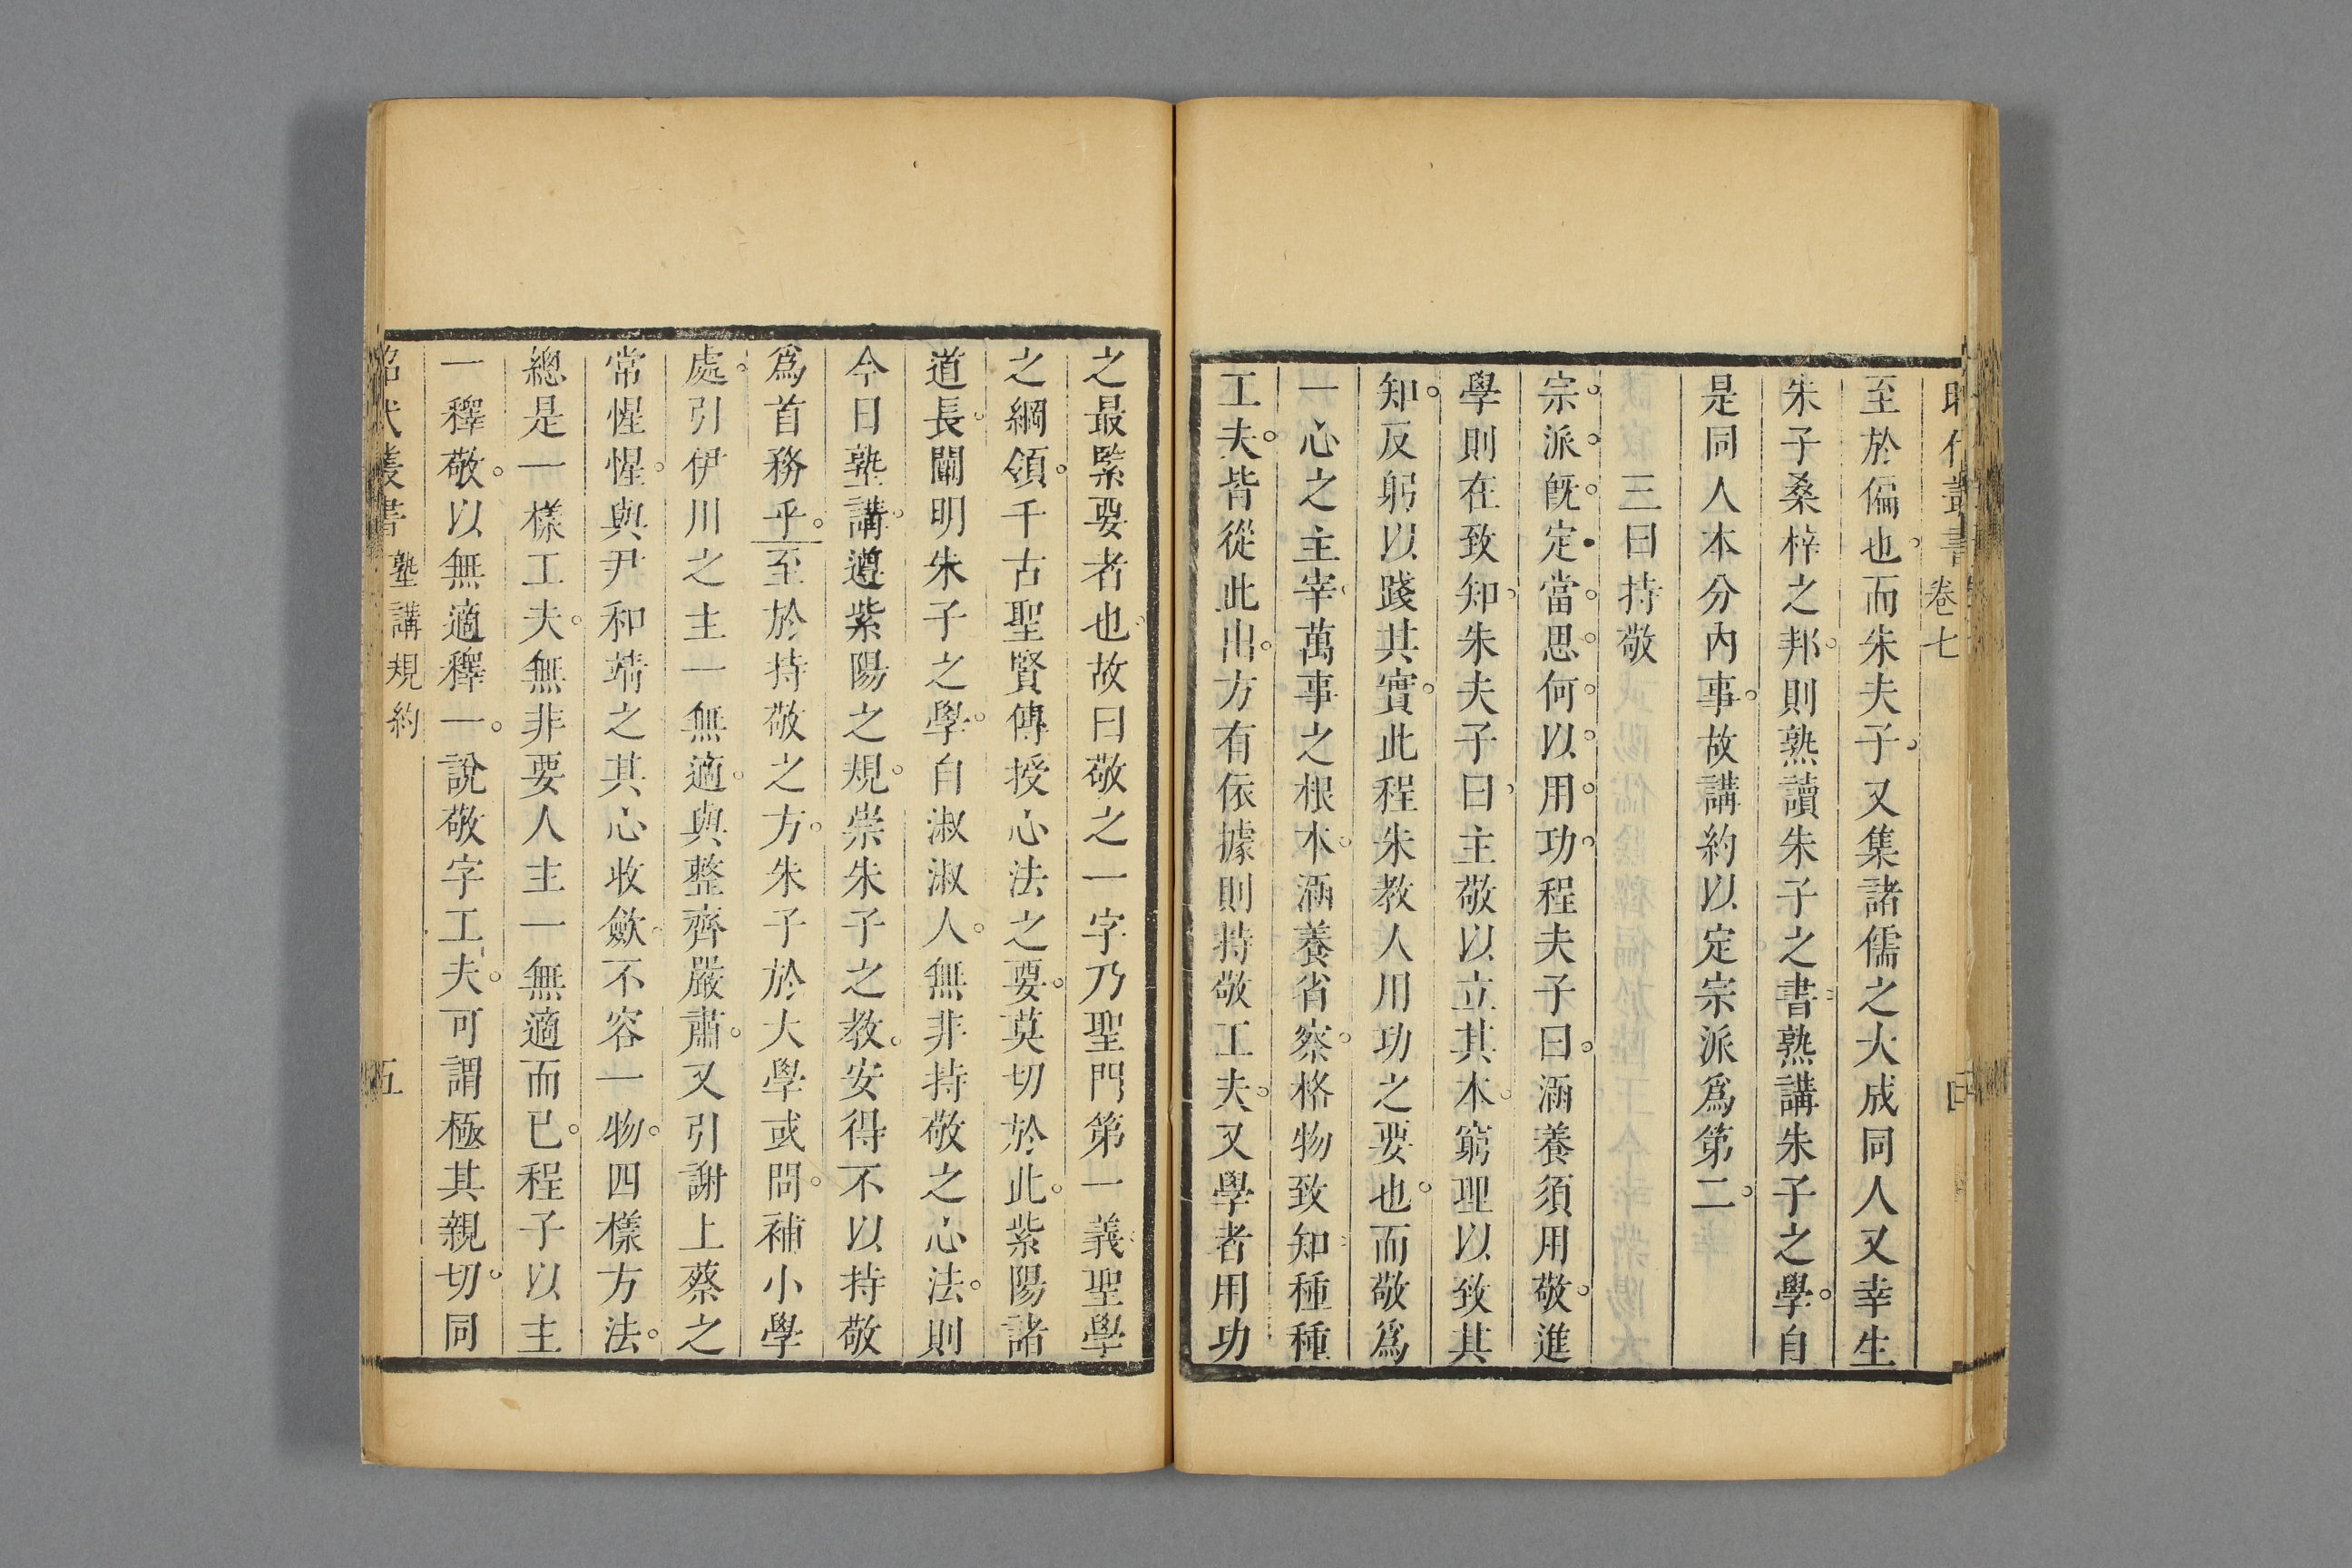 昭代叢書 卷七 四
至於偏也而朱夫子又集諸儒之大成同人又幸生
朱子桑梓之邦則熟讀朱子之書熟講朱子之學自
是同人本分內事故講約以定宗派爲第二
三曰持敬
宗派旣定當思何以用功程夫子曰涵養須用敬進
學則在致知朱夫子曰主敬以立其本窮理以致其
知反躬以踐其實此程朱教人用功之要也而敬爲
一心之主宰萬事之根本涵養省察格物致知種種
工夫皆從此出方有依據則持敬工夫又學者用功
之最緊要者也故曰敬之一字乃聖門第一義聖學
之綱領千古聖賢傳授心法之要莫切於此紫陽諸
道長闡明朱子之學自淑淑人無非持敬之心法則
今日塾講遵紫陽之規崇朱子之教安得不以持敬
爲首務乎至於持敬之方朱子於大學或問補小學
處引伊川之主一無適與整齊嚴肅又引謝上蔡之
常惺惺與尹和靖之其心收斂不容一物四樣方法
總是一樣工夫無非要人主一無適而已程子以主
一釋敬以無適釋一說敬字工夫可謂極其親切同
昭代叢書 塾講規約 五